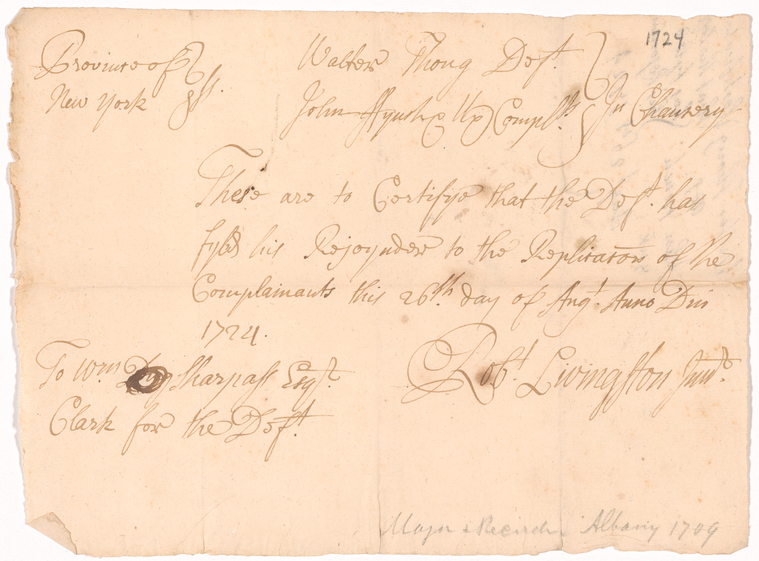 1724
Province of } ss.
New York
Walter Thong Deft.
John ffynch & Ux Complts } In Chancery
These are to Certifye that the Deft. has
fyled his Rejoynder to the Replicacon of the
Complainants this 26th day of Augt. Anno Dm
1724.
To Wm Sharpass Esqr.
Clark for the Deft.
Robt. Livingston Junr.
Major & Albany 1709